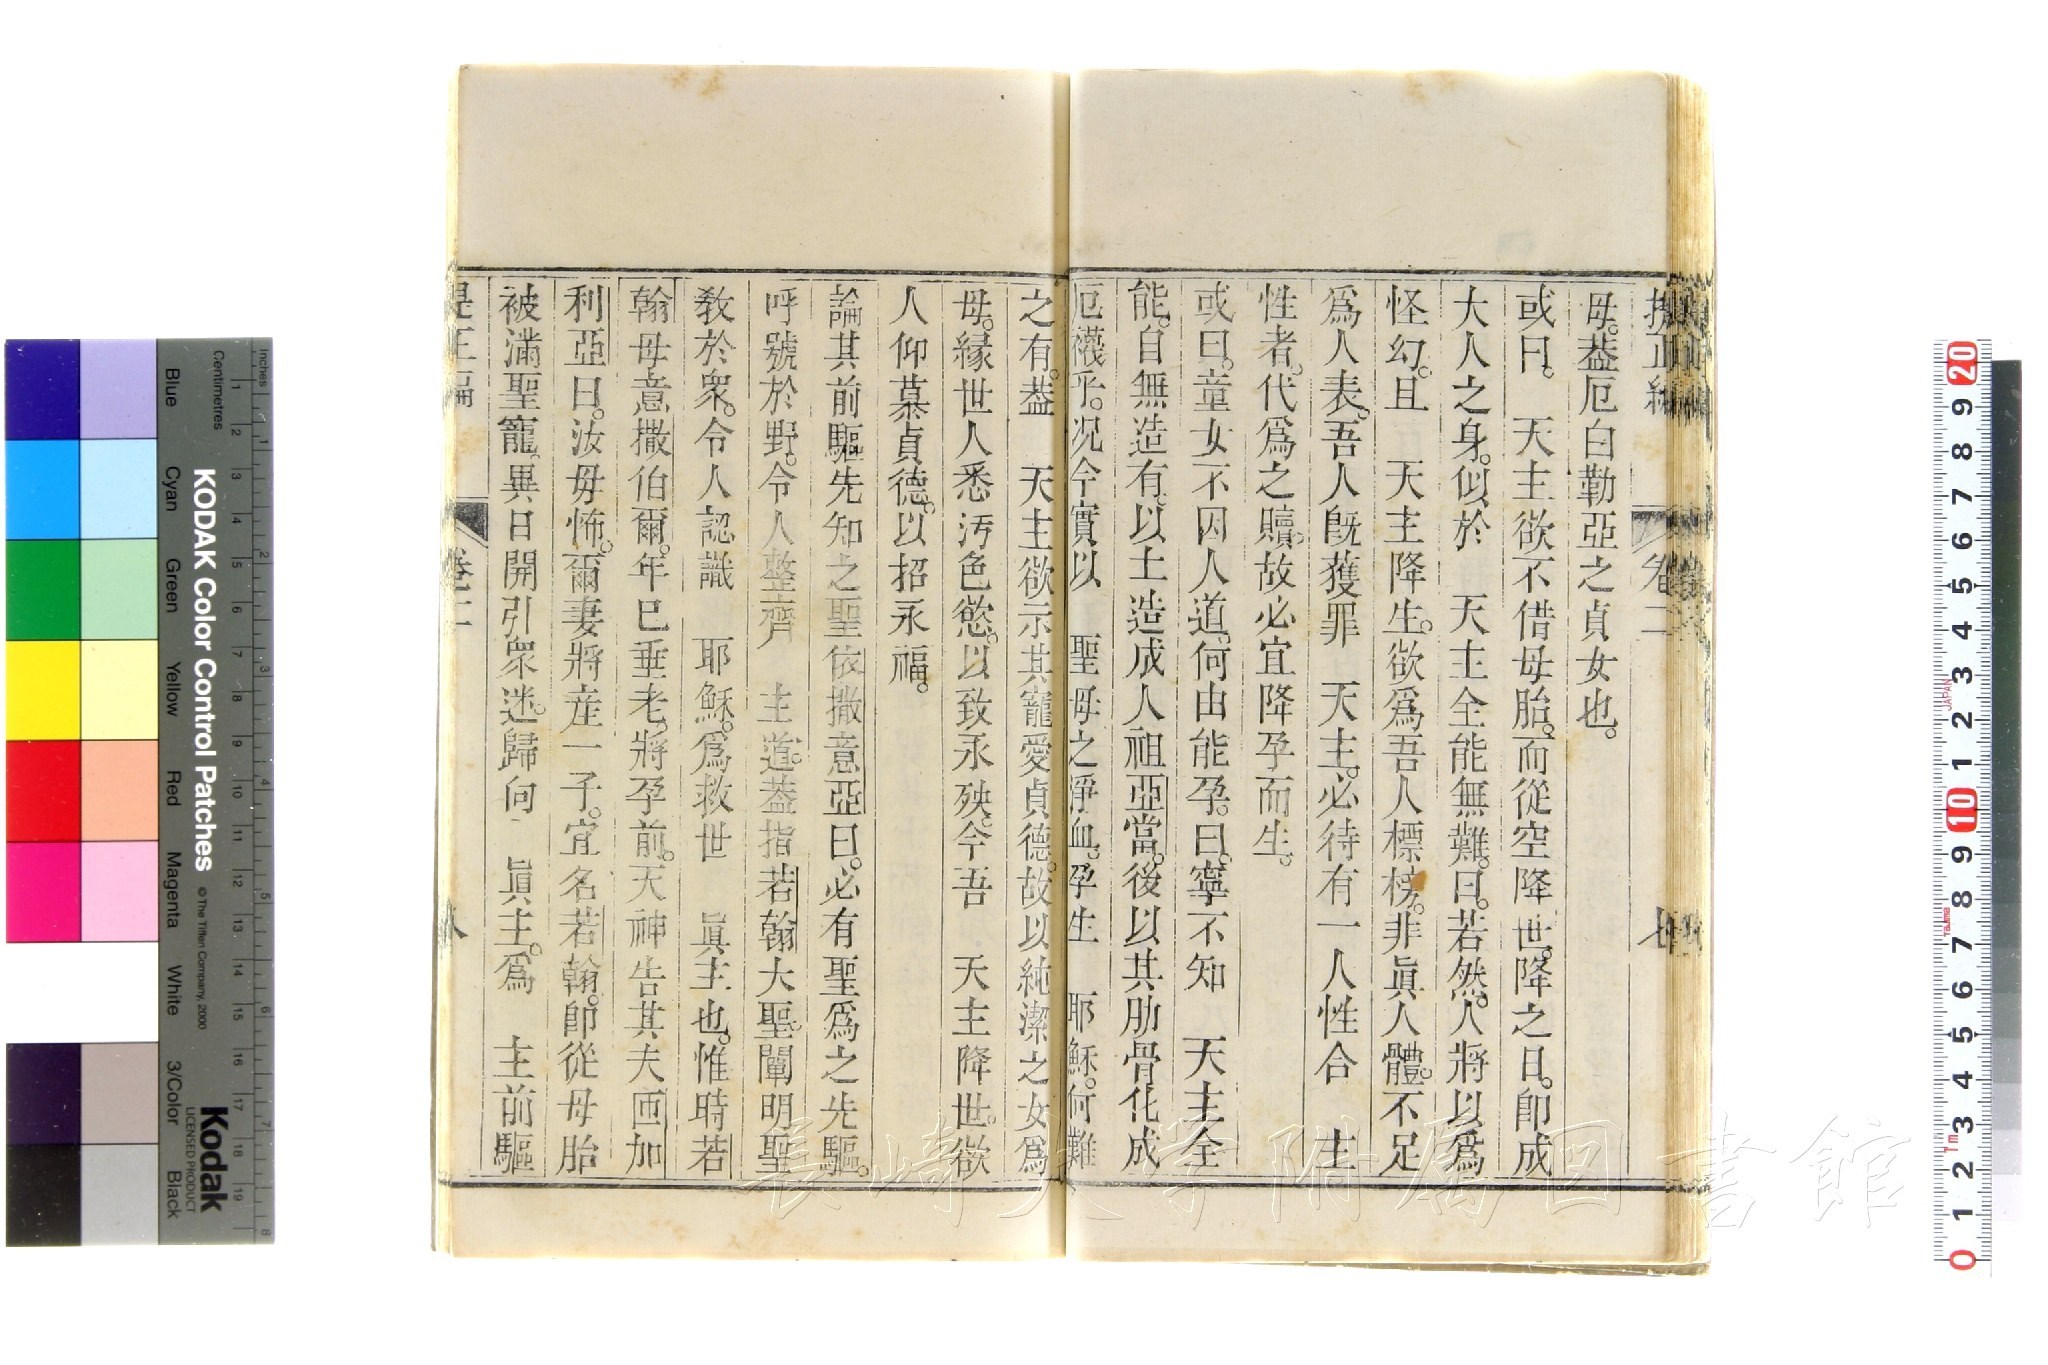 卷二
母。葢厄白勒亞之貞女也。
或曰。 天主欲不借母胎。而從空降世。降之日。卽成
大人之身。似於 天主全能無難。曰。若然。人將以爲
怪幻。且 天主降生。欲爲吾人標榜。非眞人體。不足
爲人表。吾人旣獲罪 天主。必待有一人性合 生
性者。代爲之贖。故必宜降孕而生。
或曰。童女不因人道。何由能孕。曰。寧不知 天主全
能。自無造有。以土造成人祖亞當。後以其肋骨化成
厄襪乎。况今實以 聖母之淨血。孕生 耶穌。何難
之有。葢 天主欲示其寵愛貞德。故以純潔之女爲
母。緣世人悉汚色慾。以致永殃。今吾 天主降世。欲
人仰慕貞德。以招永福。
論其前驅先知之聖依撒意亞曰。必有聖爲之先驅。
呼號於野。令人整齊 主道。葢指若翰大聖。闡明聖
敎於衆。令人認識 耶穌。爲救世 眞主也。惟時若
翰母意撒伯爾。年已垂老。將孕前。天神告其夫匝加
利亞曰。汝毋怖。爾妻將産一子。宜名若翰。卽從母胎
被滿聖寵。異日開引衆迷。歸向 眞主。爲 主前驅
卷二
八
長崎大学附属図書館
KODAK Color Control Patches
© The Tiffen Company, 2000
Kodak
LICENSED PRODUCT
Inches 1 2 3 4 5 6 7 8
Centimetres 1 2 3 4 5 6 7 8 9 10 11 12 13 14 15 16 17 18 19
Blue Cyan Green Yellow Red Magenta White 3/Color Black
20 9 8 7 6 5 4 3 2 1 10 9 8 7 6 5 4 3 2 1 0
JAPAN
Tajima
Tm